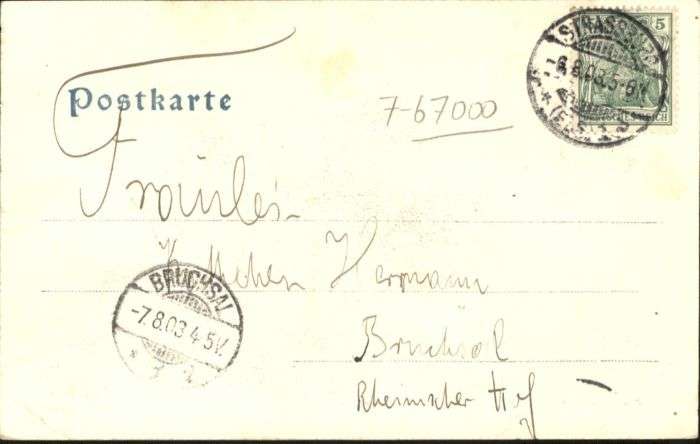 Postkarte
7-67000
5
STRASSBURG
-6.8.03.5-6V.
* (ELS.) 1
Fräulein
Käthchen Hermann
Bruchsal
Rheinischer Hof
BRUCHSAL
-7.8.03 4-5V.
* 1